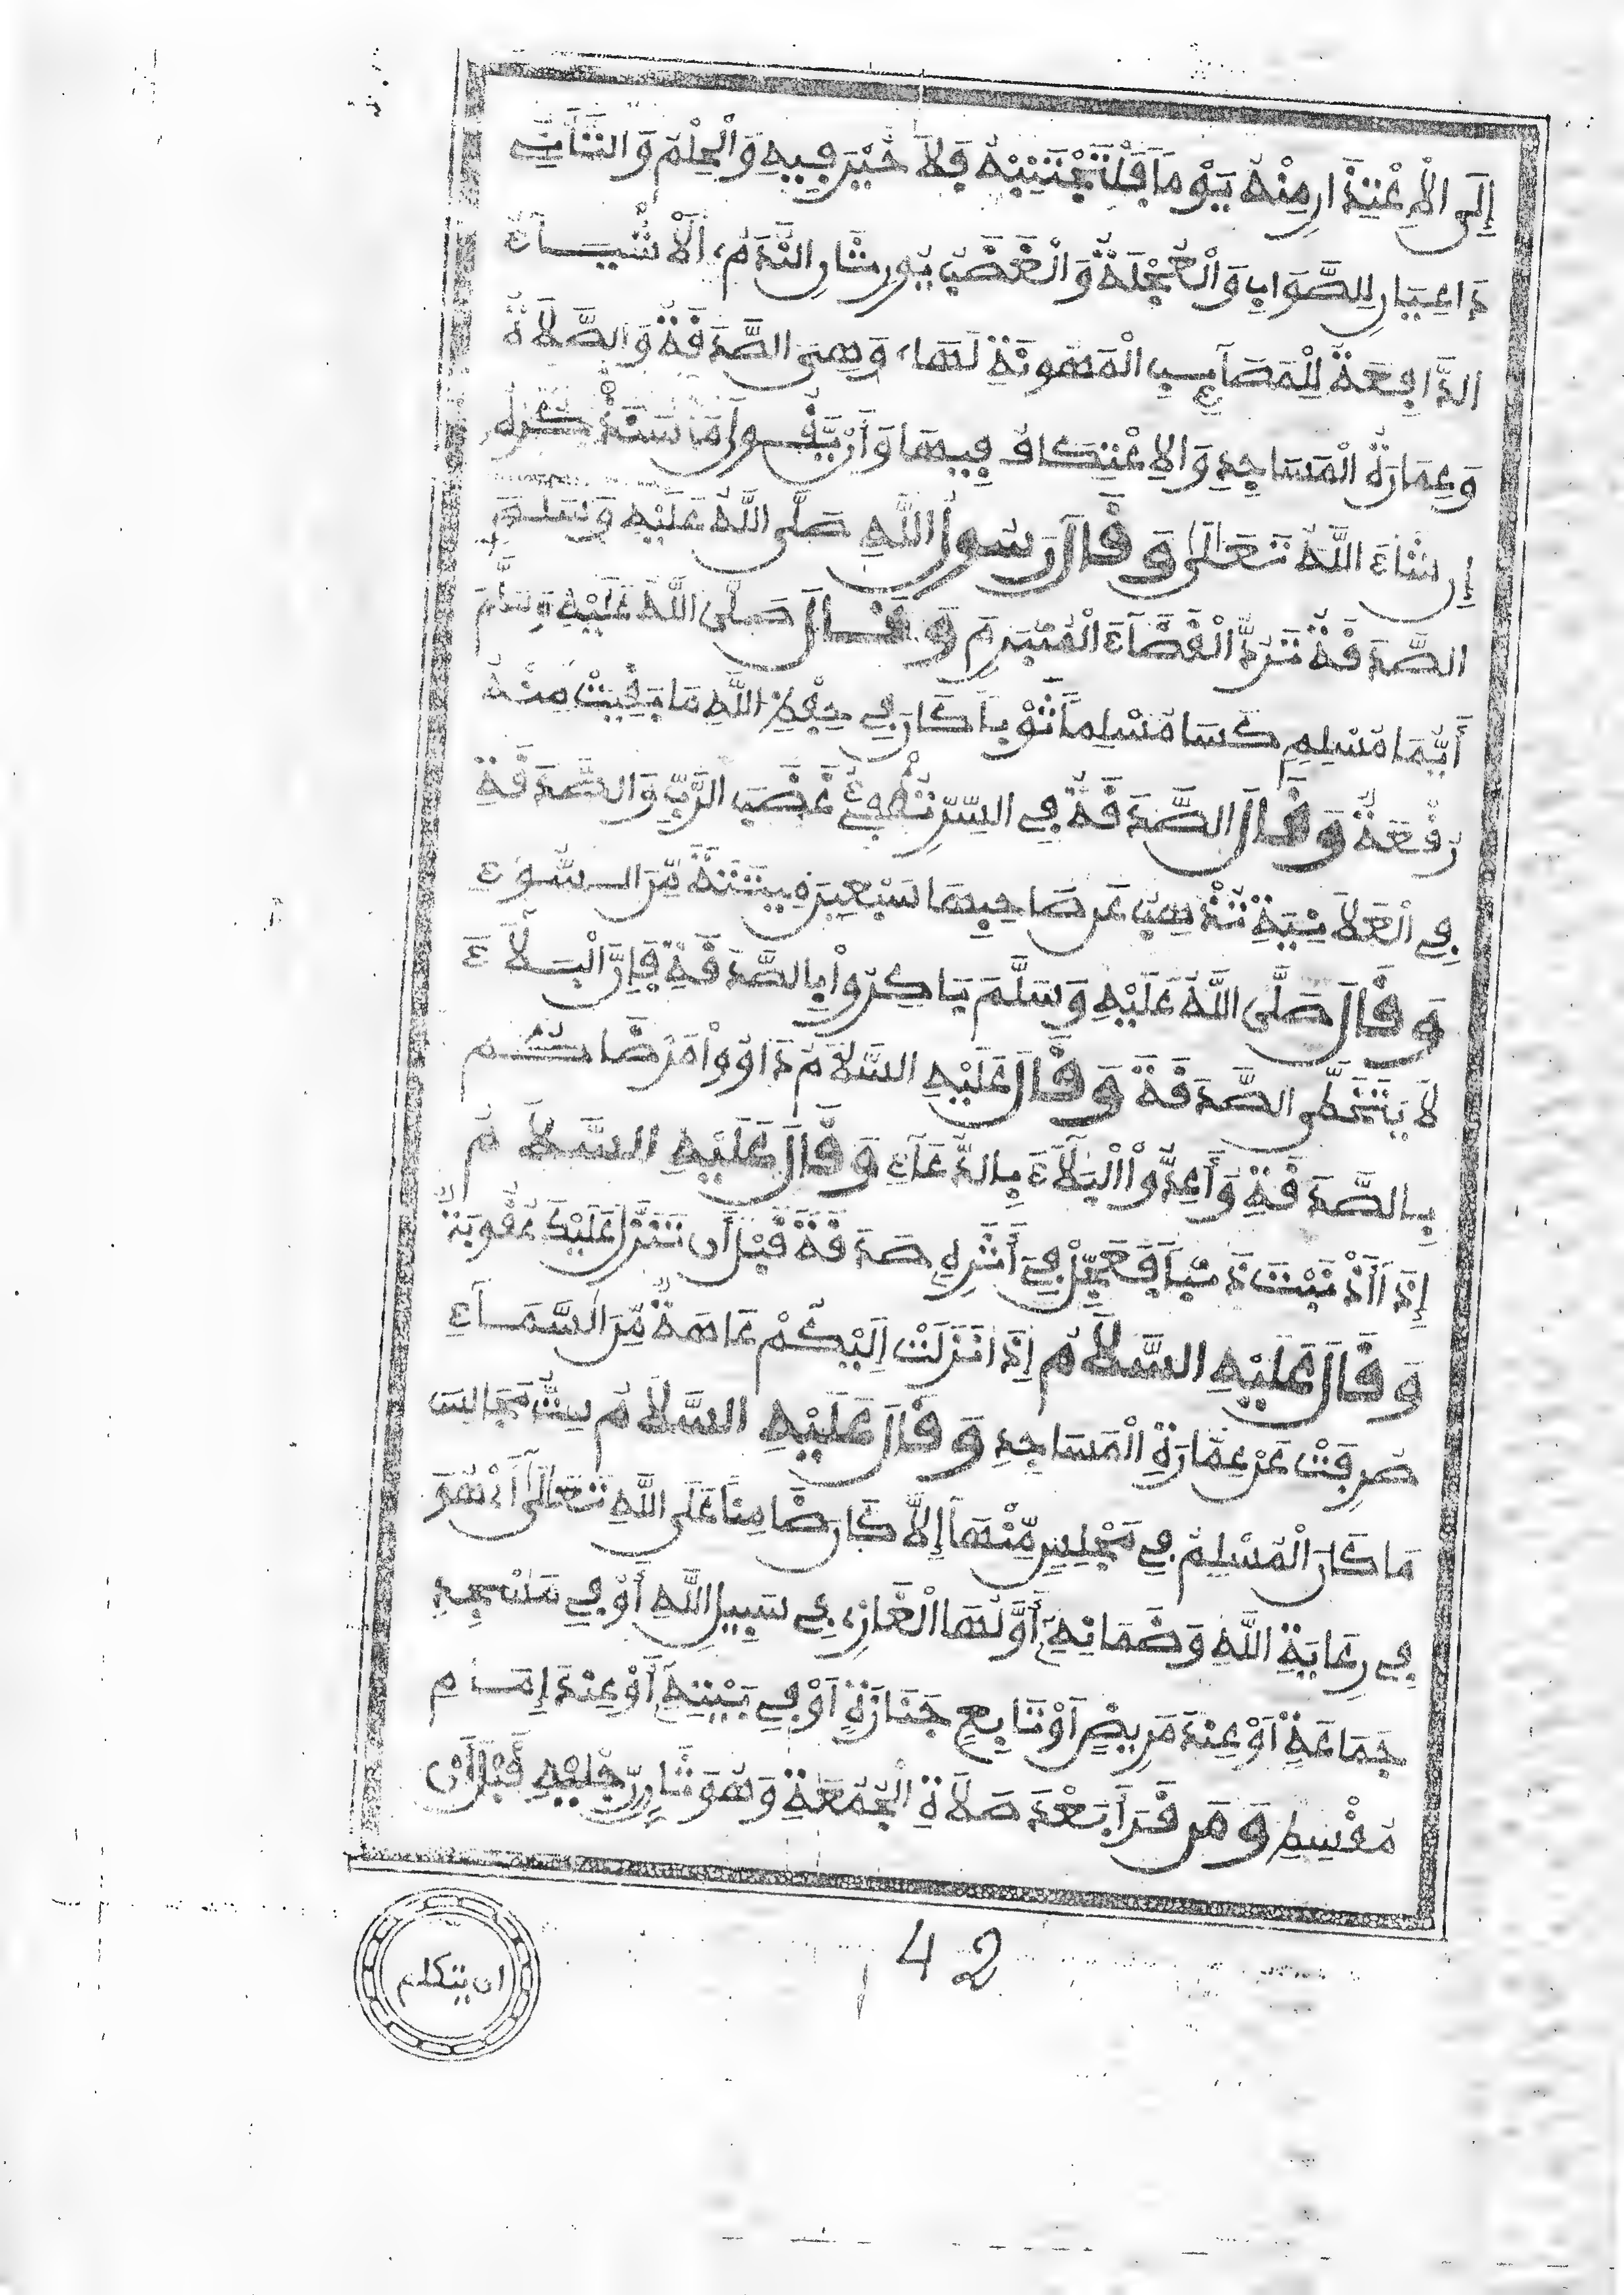 إِلَى الاِعْتِذَارِ مِنْهُ يَوْماً فَلْتَجْتَنِبْهُ فَلاَ خَيْرَ فِيهِ وَالْحِلْمُ وَالتَّأَنِّي
دَاعِيَانِ لِلصَّوَابِ وَالْعُجْلَةُ وَالْغَضَبُ يُورِثَانِ النَّدَمَ، اَلْأَشْيَاءُ
الدَّافِعَةُ لِلْمَصَآئِبِ الْمَهُونَةِ لَهَا، وَهِيَ الصَّدَقَةُ وَالصَّلاَةُ
وَعِمَارَةُ الْمَسَاجِدِ وَالاِعْتِكَافُ فِيهَا وَأَنْ يَّقُولَ مَا سَنَذْكُرُهُ
إِن شَاءَ اللَّهُ تَعَالَى وَقَالَ رَسُولُ اللَّهِ صَلَّى اللَّهُ عَلَيْهِ وَسَلَّمَ
الصَّدَقَةُ تَرُدُّ الْقَضَآءَ الْمُبْرَمَ وَقَالَ صَلَّى اللَّهُ عَلَيْهِ وَسَلَّمَ
أَيُّمَا مُسْلِمٍ كَسَا مُسْلِماً ثَوْباً كَانَ فِي حِفْظِ اللَّهِ مَا بَقِيَتْ مِنْهُ
رُقْعَةٌ وَقَالَ الصَّدَقَةُ فِي السِّرِّ تُطْفِئُ غَضَبَ الرَّبِّ وَالصَّدَقَةِ
فِي الْعَلاَنِيَةِ تُذْهِبُ عَن صَاحِبِهَا سَبْعِينَ مِيتَةً مِّنَ السُّوءِ
وَقَالَ صَلَّى اللَّهُ عَلَيْهِ وَسَلَّمَ بَاكِرُواْ بِالصَّدَقَةِ فَإِنَّ الْبَلَآءَ
لاَ يَتَخَطَّى الصَّدَقَةَ وَقَالَ عَلَيْهِ السَّلاَمُ دَاوُواْ مَرْضَاكُم
بِالصَّدَقَةِ وَأَعِدُّواْ الْبَلَآءَ بِالدُّعَآءِ وَقَالَ عَلَيْهِ السَّلاَمُ
إِذَا أَذْنَبْتَ ذَنْباً فَعَجِّلْ فِي أَثَرِهِ صَدَقَةً قَبْلَ أَن تَنْزِلَ عَلَيْكَ عُقُوبَةٌ
وَقَالَ عَلَيْهِ السَّلاَمُ إِذَا نَزَلَتْ إِلَيْكُمْ عَاهَةٌ مِّنَ السَّمَآءِ
صُرِفَتْ عَنْ عِمَارَةِ الْمَسَاجِدِ وَقَالَ عَلَيْهِ السَّلاَمُ سِتُّ مَجَالِسَ
مَا كَانَ الْمُسْلِمُ فِي مَجْلِسٍ مِّنْهَا إِلاَّ كَانَ ضَامِناً عَلَى اللَّهِ تَعَالَى أَىْ هُوَ
فِي رِعَايَةِ اللَّهِ وَضَمَانِهِ أَوَّلُهَا الْغَازِي فِي سَبِيلِ اللَّهِ أَوْ فِي مَسْجِدِ
جَمَاعَةٍ أَوْ عِنْدَ مَرِيضٍ أَوْ تَابِعِ جَنَازَةٍ أَوْ فِي بَيْتِهِ أَوْ عِنْدَ إِمَامٍ
مُقْسِطٍ وَمَن قَرَأَ بَعْدَ صَلاَةِ الْجُمُعَةِ وَهُوَ ثَانٍ رِّجْلَيْهِ قَبْلَ أَنْ
ان يتكلم
42